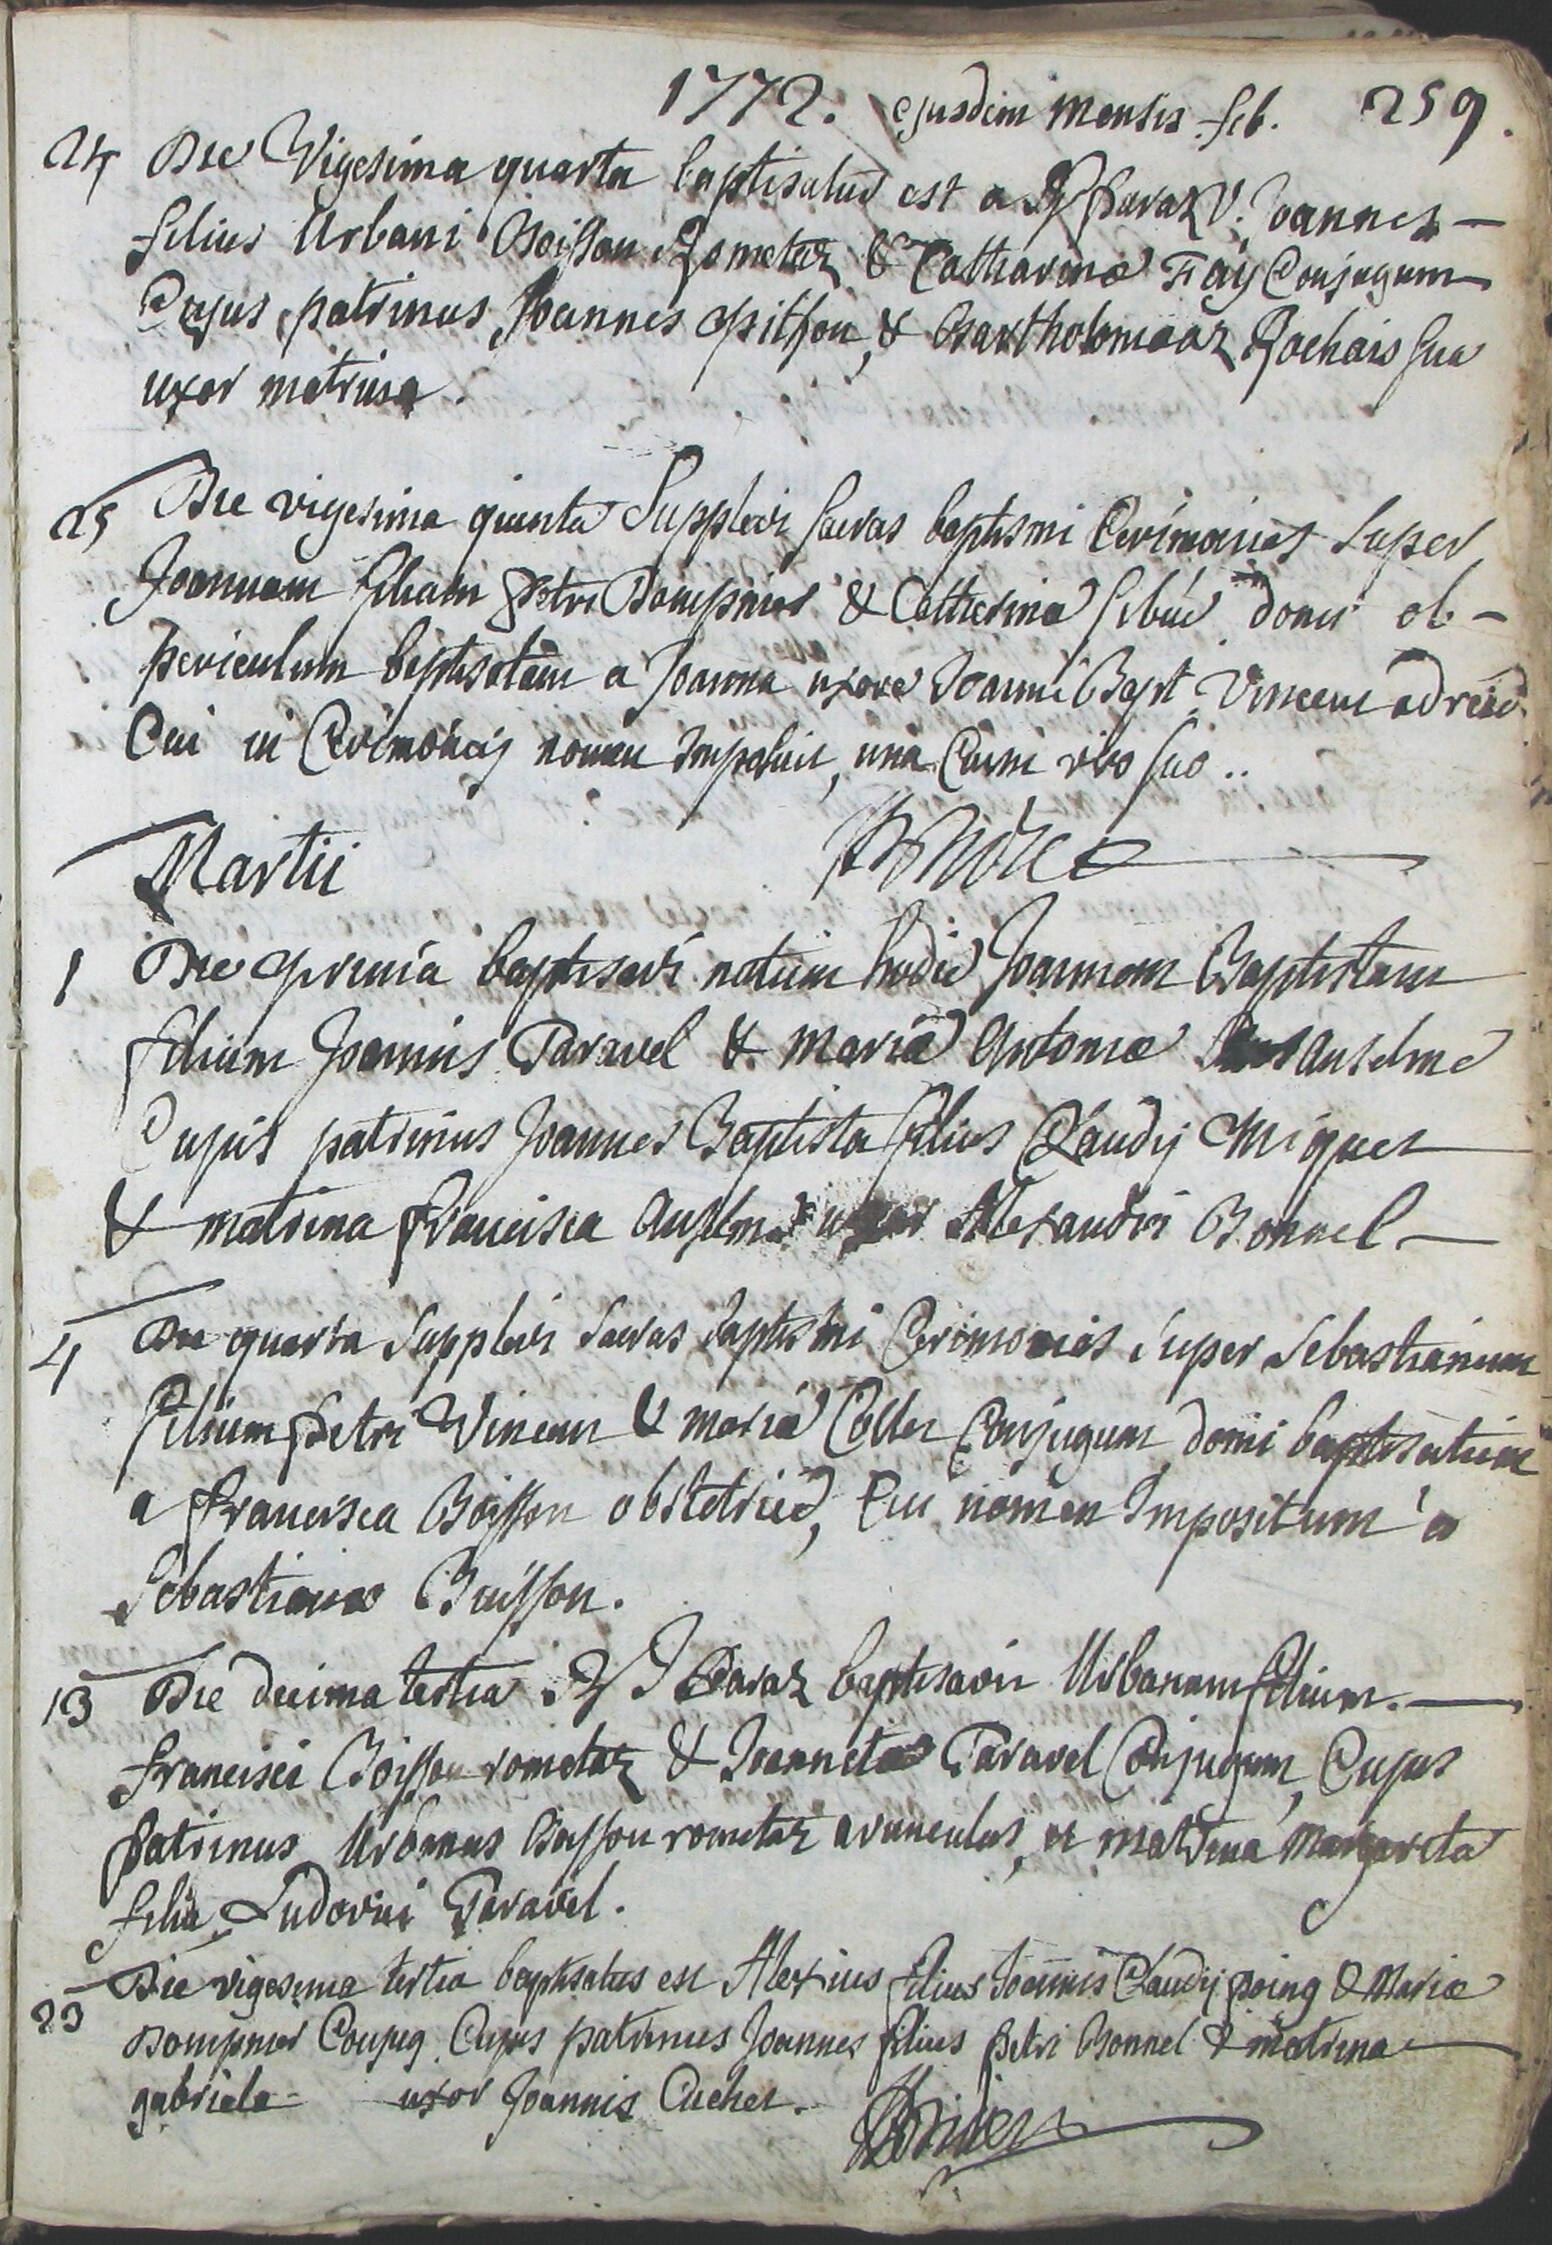 1772. ejusdem mensis feb. 259.
24 Die Vigesima quarta baptisatus est a R Paraz V. Joannes
filius Urbani Boisson Rometaz & Catharinæ Fay Conjugum
Cujus patrinus Joannes pithon, & Bartholomæaz Rochais sua
uxor matrina.
25 Die vigesima quinta Supplevi sacras baptismi Cerimonias super
Joannam filiam Petri Dompnier & Catherina domi ob
periculum baptisatam a Joanna uxore Joannis Bapt Vincent
Cui in Cerimoniis nomen Imposuit, una Cum viro suo ..
Martii
1 Die prima baptisavi natum hodie Joannem Baptistam
filium Joannis Taravel & mariæ Antoniæ Anselme
Cujus patrinus Joannes Baptista filius Claudij Miquet
& matrina francisca Anselme uxor Alexandri Bonnel
4 Die quarta Supplevi Sacras baptismi Cerimonias super Sebastianum
filium Petri Vincent & mariæ Collet Conjugum domi baptisatum
a francisca Boisson obstetrice, Cui nomen Impositum a
Sebastiano Buisson.
13 Die decima tertia R Paraz baptisavit Urbanum filium.
francisci Boisson rometaz & Joannetæ Taravel Conjugum, Cujus
patrinus Urbanus Boisson rometaz avunculus, et matrina margarita
filia Ludovici Taravel.
23 Die vigesima tertia baptisatus est Alexius filius Joannis Claudij poing & Mariæ
Dompnier Conjug. Cujus patrinus Joannes filius Petri Bonnel & matrina
gabriele uxor Joannis Cuchet.